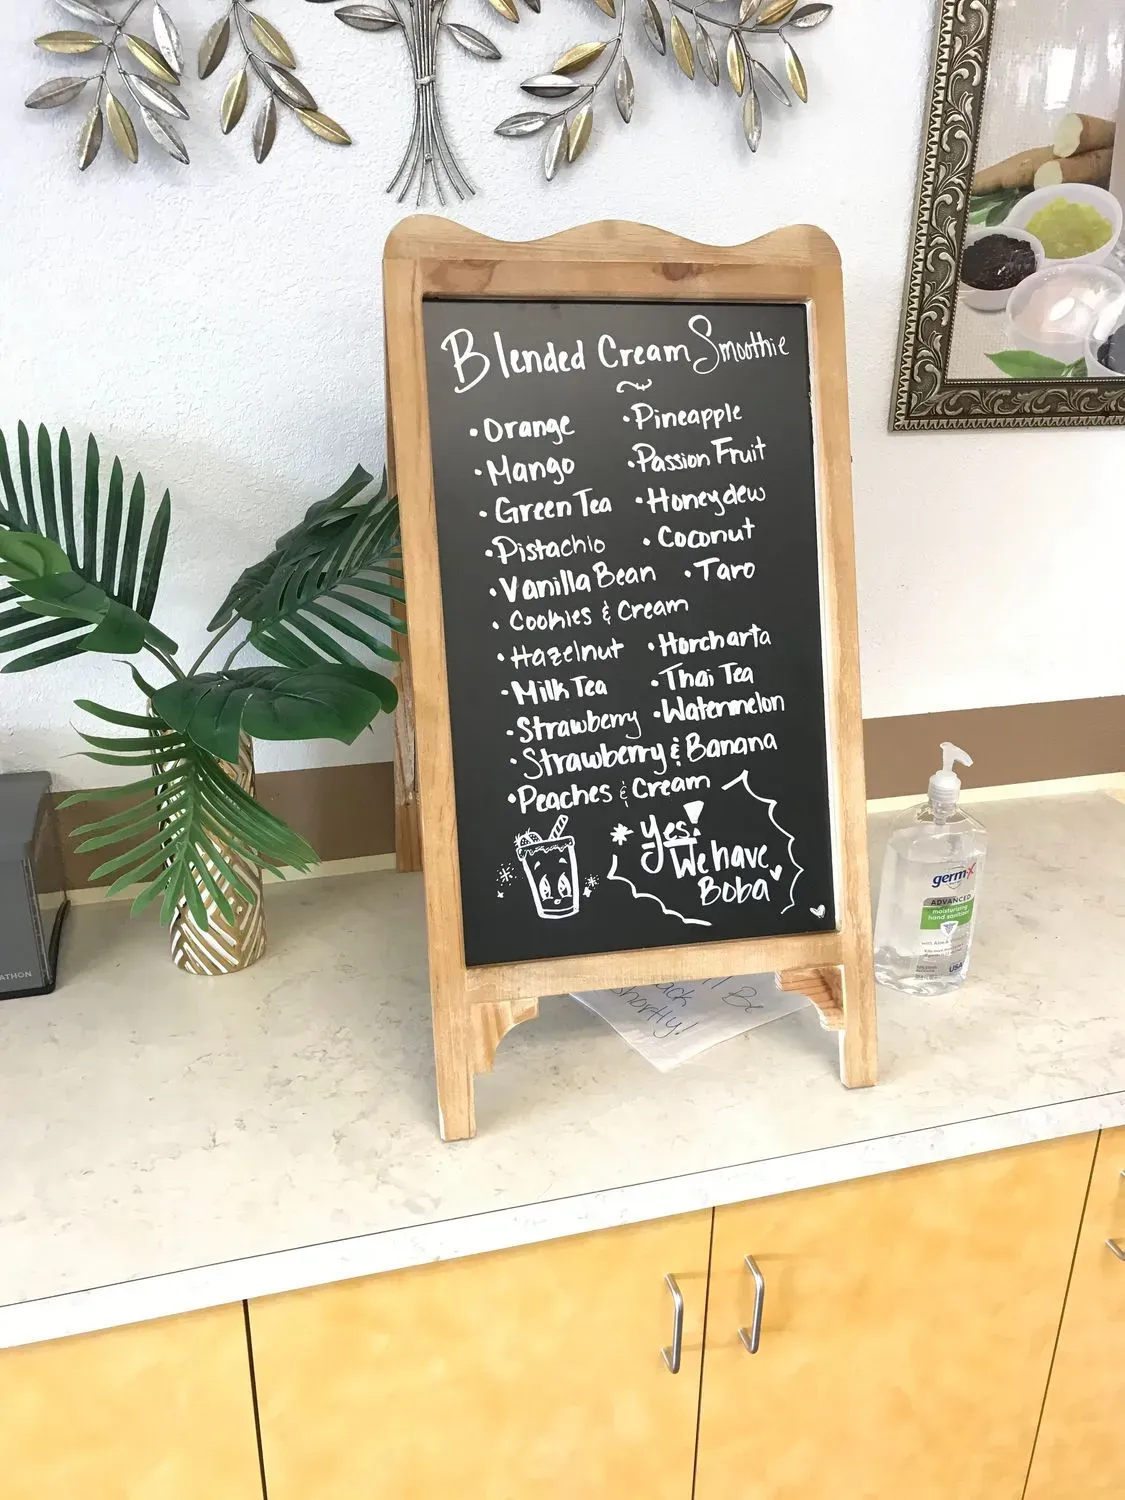 Blended Cream Smoothie
• Orange • Pineapple
• Mango • Passion Fruit
• Green Tea • Honeydew
• Pistachio • Coconut
• Vanilla Bean • Taro
• Cookies & Cream
• Hazelnut • Horcharta
• Milk Tea • Thai Tea
• Strawberry • Watermelon
• Strawberry & Banana
• Peaches & Cream
Yes!
We have
Boba
ll Be
ack
shortly!
germ-x
ADVANCED
moisturizing
hand sanitizer
USA
ATHON